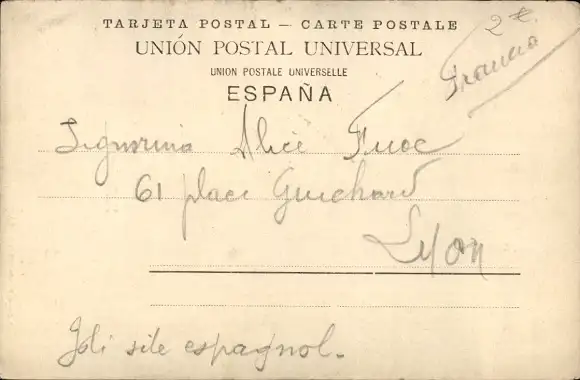 TARJETA POSTAL — CARTE POSTALE
UNIÓN POSTAL UNIVERSAL
UNION POSTALE UNIVERSELLE
ESPAÑA
2 €
Francia
Signorina Alice Fuoc
61 place Guichard
Lyon
Joli site espagnol.